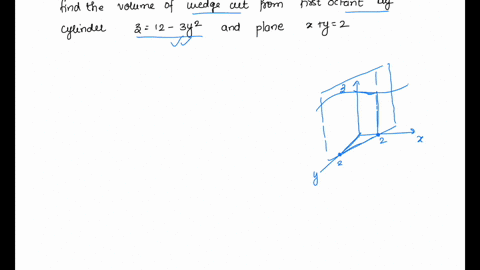 find the volume of wedge cut from first octant by
cylinder z = 12 - 3y² and plane x+y=2
z
2
x
2
y